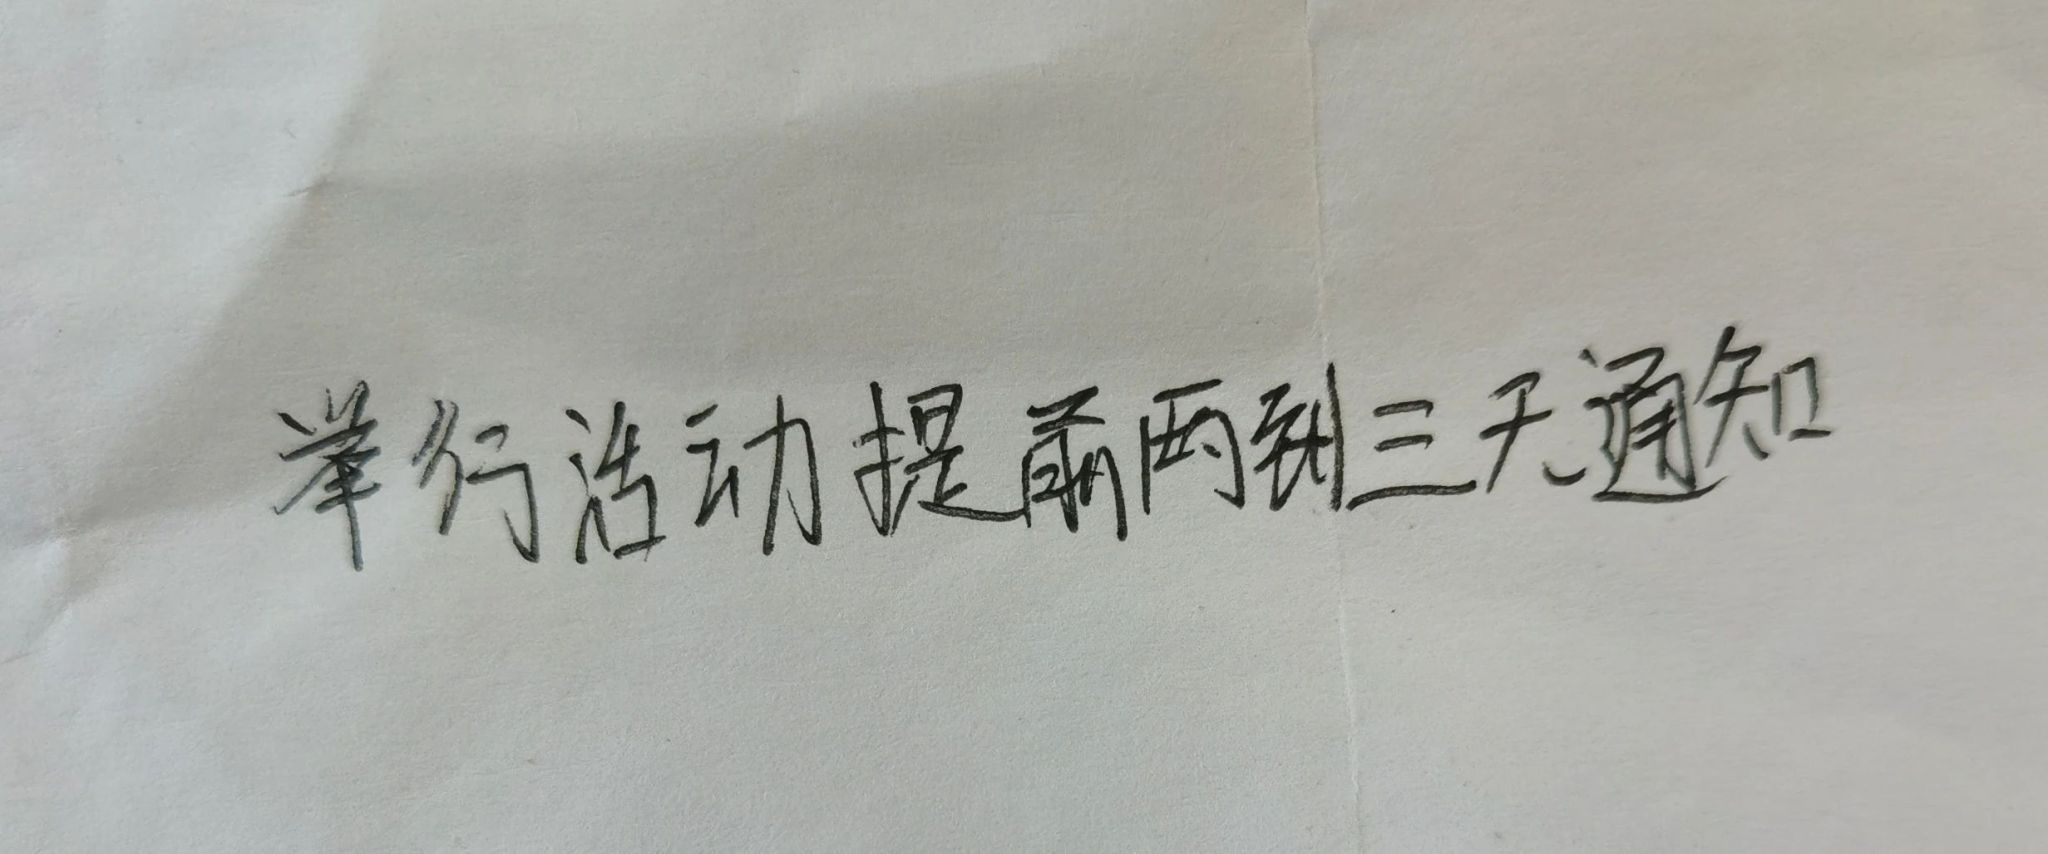 举行活动提前两到三天通知